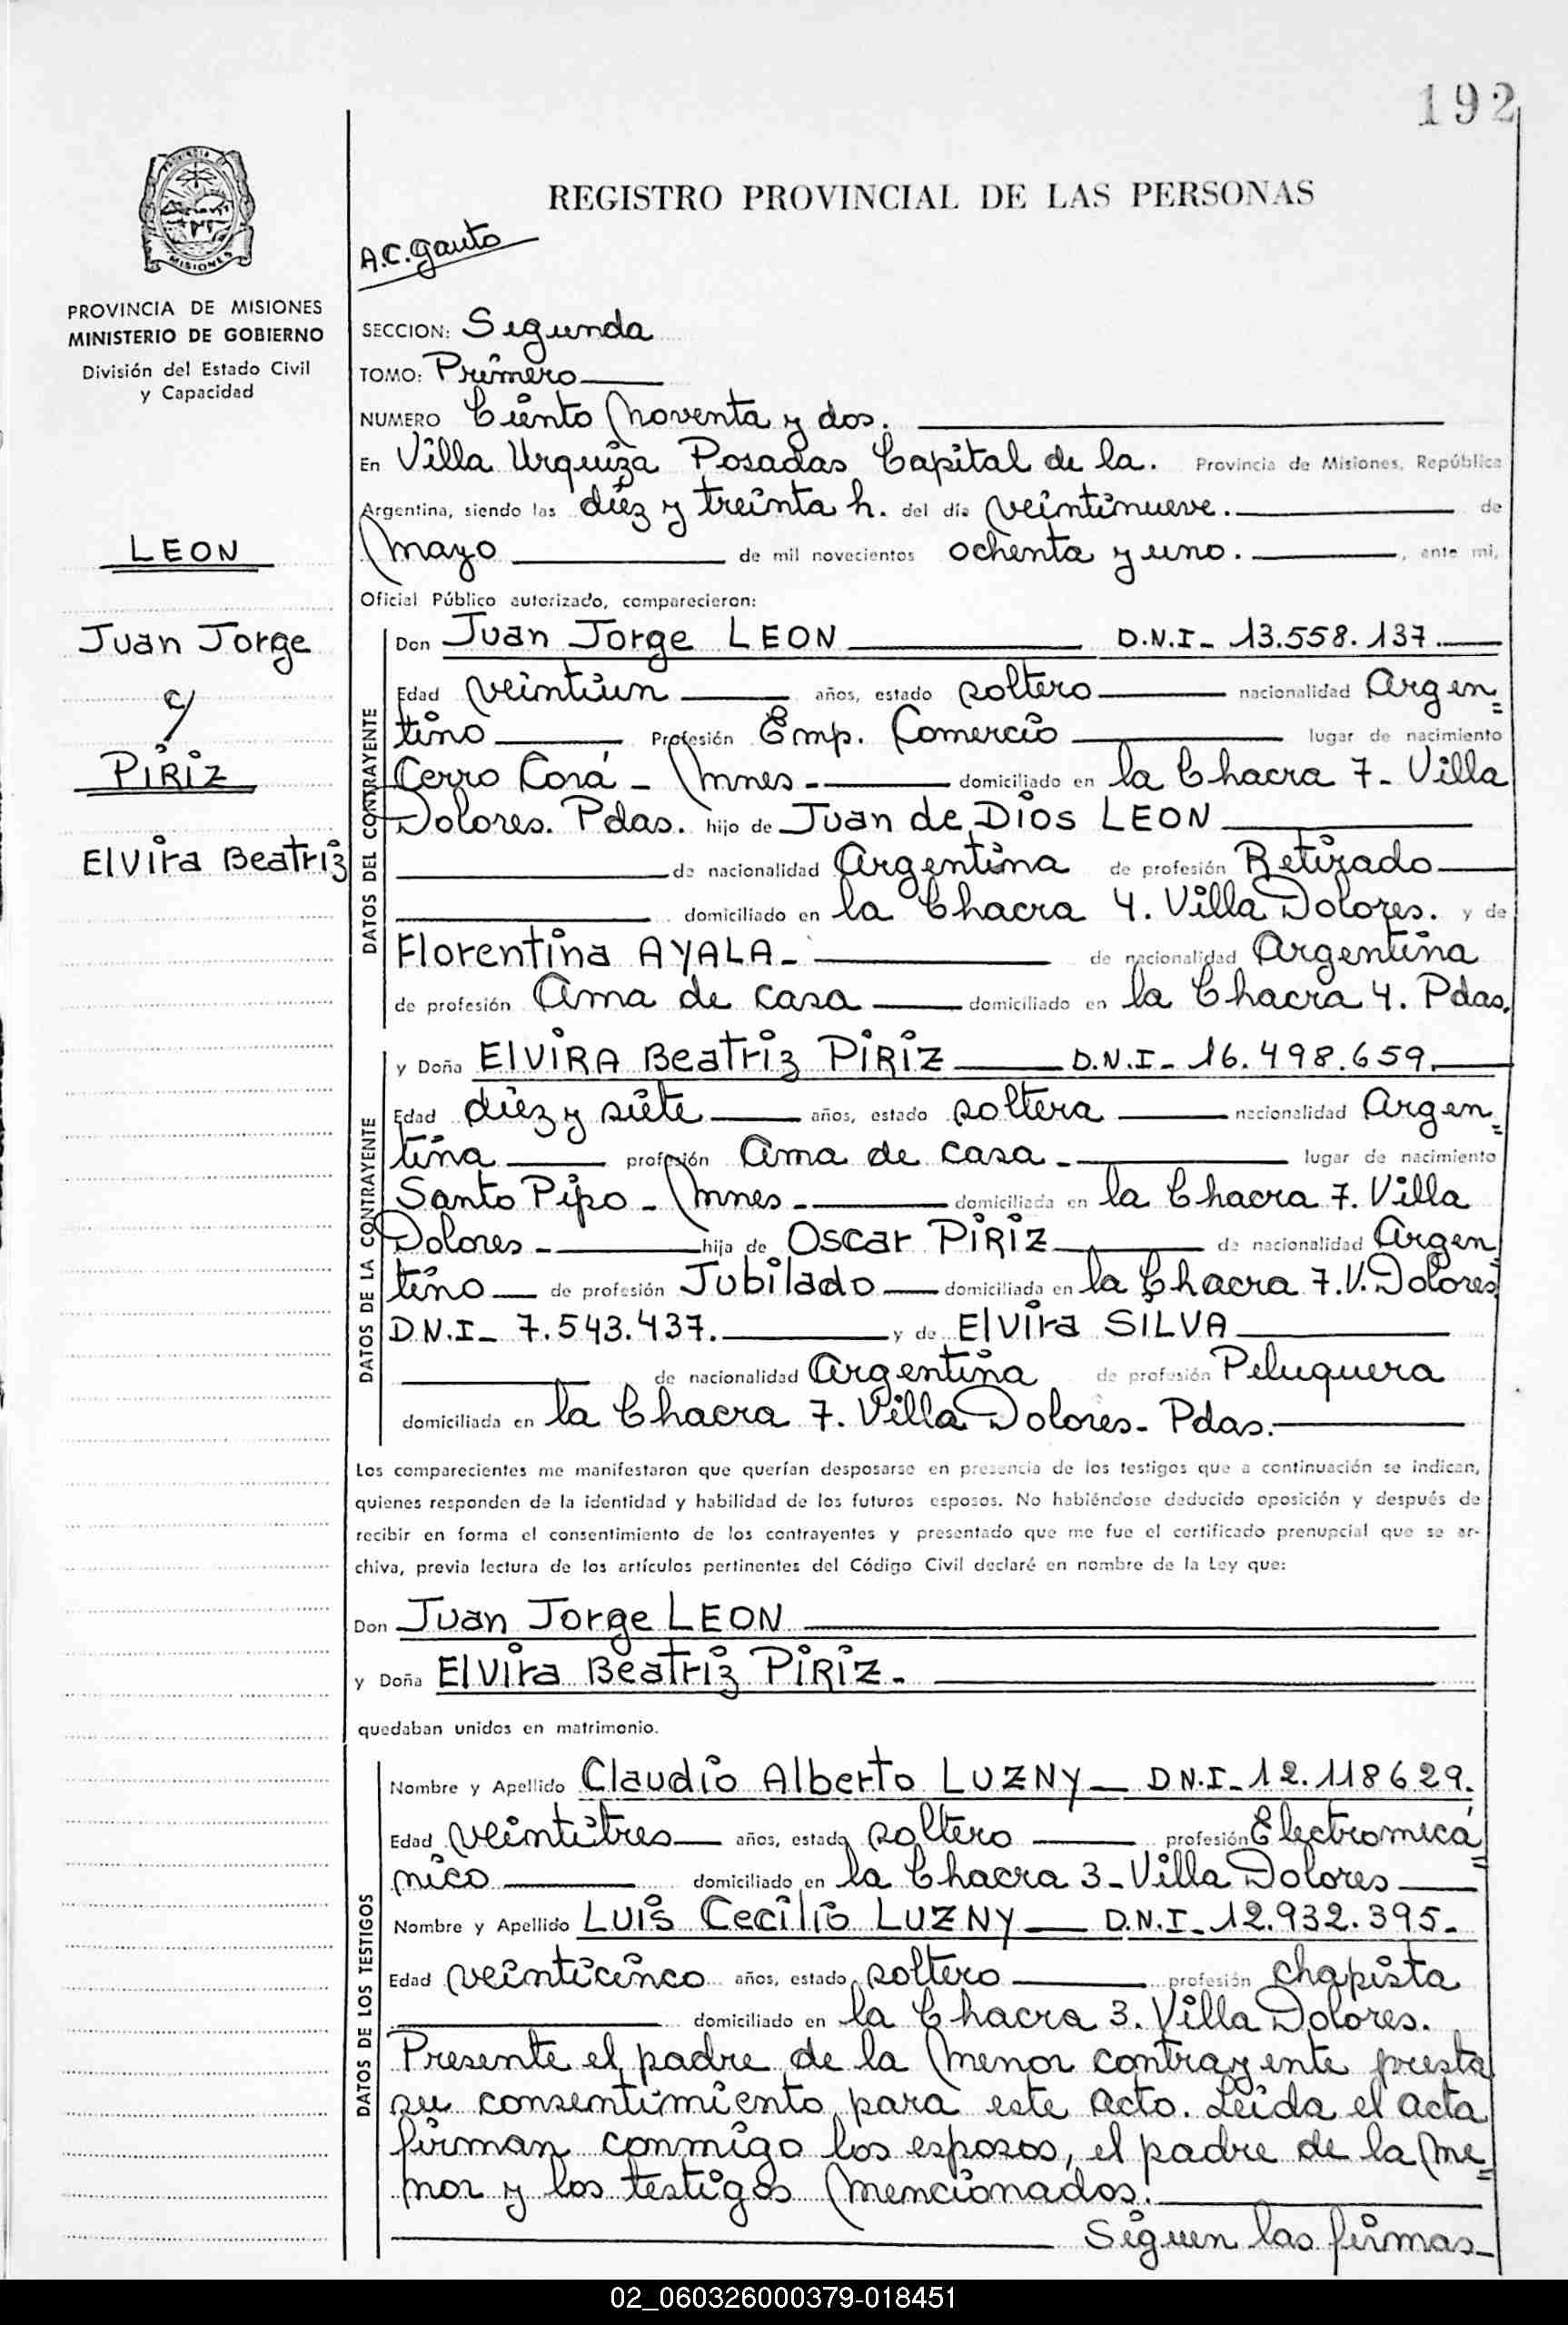 192
REGISTRO PROVINCIAL DE LAS PERSONAS
A.C. Gauto
PROVINCIA DE MISIONES
MINISTERIO DE GOBIERNO
División del Estado Civil
y Capacidad
LEON
Juan Jorge
c/
PIRIZ
Elvira Beatriz
SECCION: Segunda
TOMO: Primero
NUMERO Ciento noventa y dos.
En Villa Urquiza Posadas Capital de la. Provincia de Misiones, República
Argentina, siendo las diez y treinta h. del día veintinueve. de
mayo de mil novecientos ochenta y uno. , ante mi,
Oficial Público autorizado, comparecieron:
DATOS DEL CONTRAYENTE
Don Juan Jorge LEON D.N.I- 13.558.137.
Edad veintiun años, estado soltero nacionalidad Argen=
tino Profesión Emp. Comercio lugar de nacimiento
Cerro Corá - Mnes - domiciliado en la Chacra 7- Villa
Dolores. Pdas. hijo de Juan de Dios LEON
de nacionalidad Argentina de profesión Retirado
domiciliado en la Chacra 4. Villa Dolores. y de
Florentina AYALA- de nacionalidad Argentina
de profesión Ama de casa domiciliado en la Chacra 4. Pdas.
DATOS DE LA CONTRAYENTE
y Doña ElVIRA Beatriz PIRIZ D.N.I- 16.498.659.
Edad diez y siete años, estado soltera nacionalidad Argen=
tina profesión Ama de casa - lugar de nacimiento
Santo Pipo - Mnes - domiciliada en la Chacra 7. Villa
Dolores - hija de Oscar PIRIZ de nacionalidad Argen
tino de profesión Jubilado domiciliada en la Chacra 7. V. Dolores
D.N.I- 7.543.437. y de Elvira SILVA
de nacionalidad Argentina de profesión Peluquera
domiciliada en la Chacra 7. Villa Dolores - Pdas.
Los comparecientes me manifestaron que querían desposarse en presencia de los testigos que a continuación se indican,
quienes responden de la identidad y habilidad de los futuros esposos. No habiéndose deducido oposición y después de
recibir en forma el consentimiento de los contrayentes y presentado que me fue el certificado prenupcial que se ar-
chiva, previa lectura de los artículos pertinentes del Código Civil declaré en nombre de la Ley que:
Don Juan Jorge LEON
y Doña Elvira Beatriz PIRIZ.
quedaban unidos en matrimonio.
DATOS DE LOS TESTIGOS
Nombre y Apellido Claudio Alberto LUZNY D N.I- 12.118629.
Edad veintitres años, estado soltero profesión Electromecá=
nico domiciliado en la Chacra 3- Villa Dolores
Nombre y Apellido LUIS Cecilio LUZNY D.N.I- 12.932.395.
Edad veinticinco años, estado soltero profesión chapista
domiciliado en la Chacra 3. Villa Dolores.
Presente el padre de la menor contrayente presta
su consentimiento para este acto. Leida el acta
firman conmigo los esposos, el padre de la me=
nor y los testigos mencionados.
Siguen las firmas
02_060326000379-018451